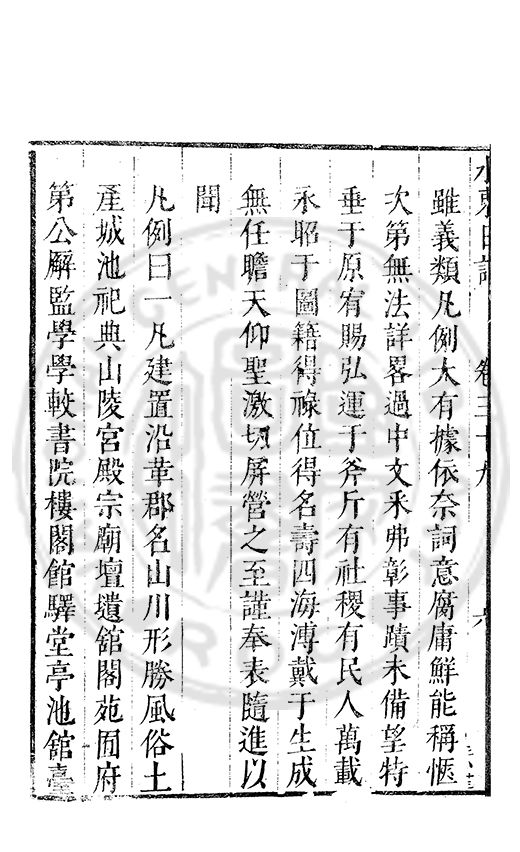 水東日記 卷三十九 六
雖義類凡例大有據依奈詞意腐庸鮮能稱愜
次第無法詳畧過中文釆弗彰事蹟未備望特
垂于原宥賜弘運于斧斤有社稷有民人萬載
永昭于圖籍得祿位得名壽四海溥戴于生成
無任瞻天仰聖激切屏營之至謹奉表隨進以
聞
凡例曰一凡建置沿革郡名山川形勝風俗土
產城池祀典山陵宮殿宗廟壇壝舘閣苑囿府
第公廨監學學較書院樓閣館驛堂亭池舘臺